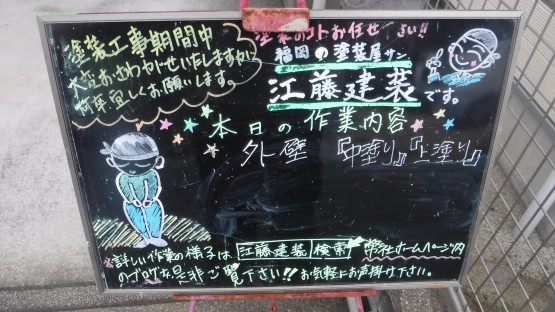 塗装工事期間中
大変おさわがせいたしますが
何卒宜しくお願いします。
塗装のコトお任せ さい!!
福岡の塗装屋サン
江藤建装です。
本日の作業内容
外壁 『中塗り』『上塗り』
※詳しい作業の様子は 江藤建装 検索 弊社ホームページ内
のブログを是非ご覧下さい!! お気軽にお声掛け下さい。